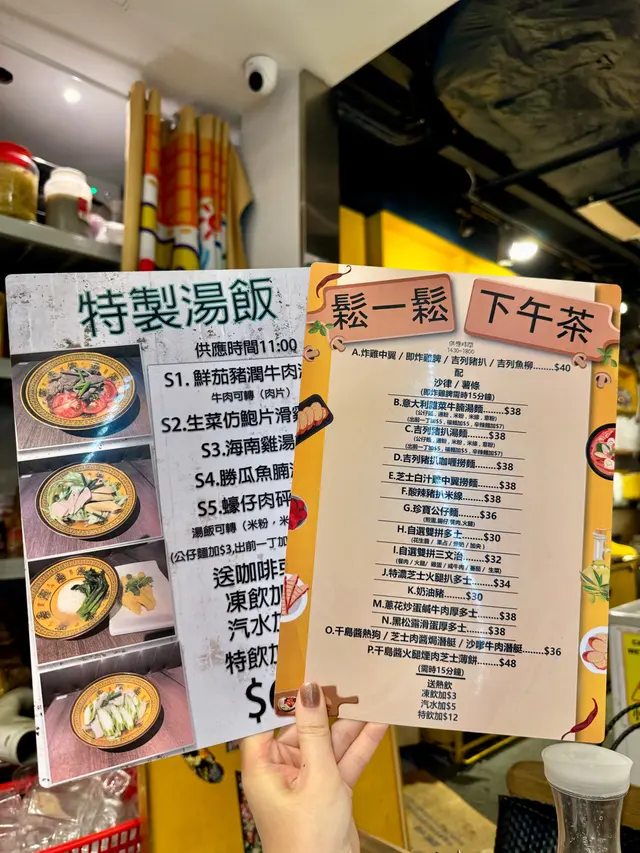 特製湯飯
供應時間11:00
S1. 鮮茄豬潤牛肉
牛肉可轉（肉片）
S2.生菜仿鮑片滑
S3.海南雞湯
S4.勝瓜魚腩
S5.蠔仔肉碎
湯飯可轉（米粉，米
(公仔麵加$3,出前一丁加
送咖啡
凍飲加
汽水加
特飲加
$
鬆一鬆
下午茶
供應時間
14:30-18:00
A.炸雞中翼 / 即炸雞脾 / 吉列豬扒 / 吉列魚柳........$40
配
沙律 / 薯條
(即炸雞脾需時15分鐘)
B.意大利雜菜牛腩湯麵......$38
C.吉列豬扒湯麵........$38
D.吉列豬扒咖喱撈麵......$38
E.芝士白汁雞中翼撈麵......$38
F.酸辣豬扒米線........$38
G.珍寶公仔麵......$36
H.自選雙拼多士......$30
I.自選雙拼三文治......$32
J.特濃芝士火腿扒多士......$34
K.奶油豬......$30
M.蔥花炒蛋鹹牛肉厚多士......$38
N.黑松露滑蛋厚多士......$38
O.千島醬熱狗 / 芝士肉醬焗潛艇 / 沙嗲牛肉潛艇........$36
P.千島醬火腿煙肉芝士薄餅......$48
(需時15分鐘)
送熱飲
凍飲加$3
汽水加$5
特飲加$12